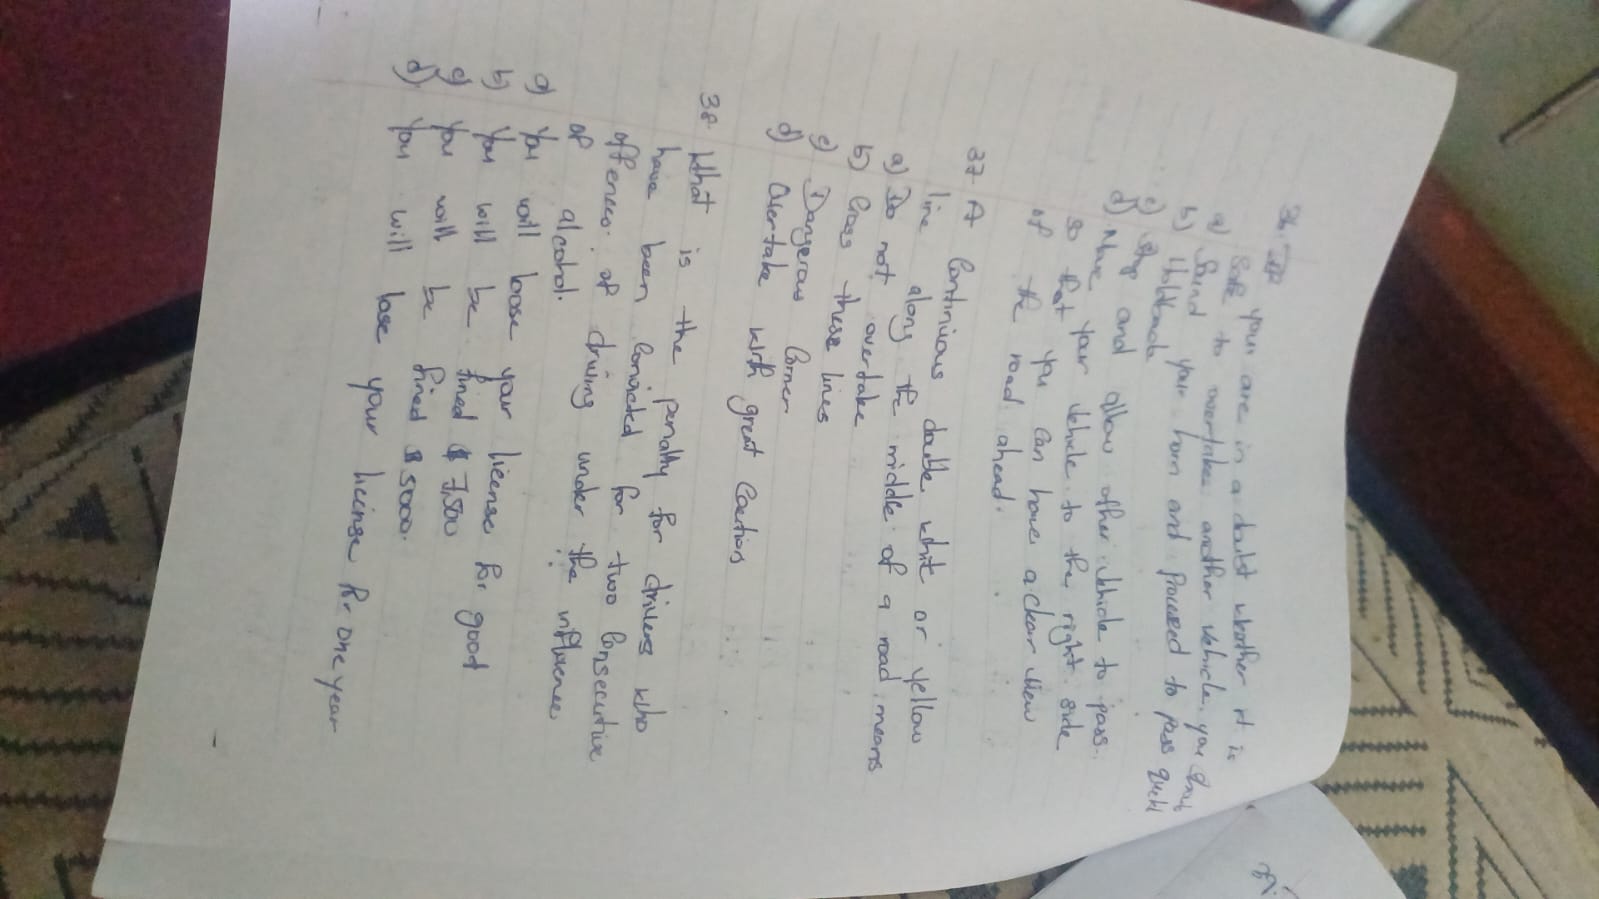 36. If you are in a doubt whether it is
safe to overtake another vehicle, you
a) Sound your horn and proceed to pass
b) Holdback
c) Stop and allow other vehicle to pass.
d) Move your vehicle to the right side
so that you can have a clear view
of the road ahead.
37. A continious double white or yellow
line along the middle of a road means
a) Do not overtake
b) Cross these lines
c) Dangerous Corner
d) Overtake with great Caution
38. What is the penalty for drivers who
have been Convicted for two Consecutive
offences: of driving under the influence
of alcohol.
a) You will loose your license for good
b) You will be fined $ 7,500
c) You will be fined $ 5000.
d) You will lose your license for one year